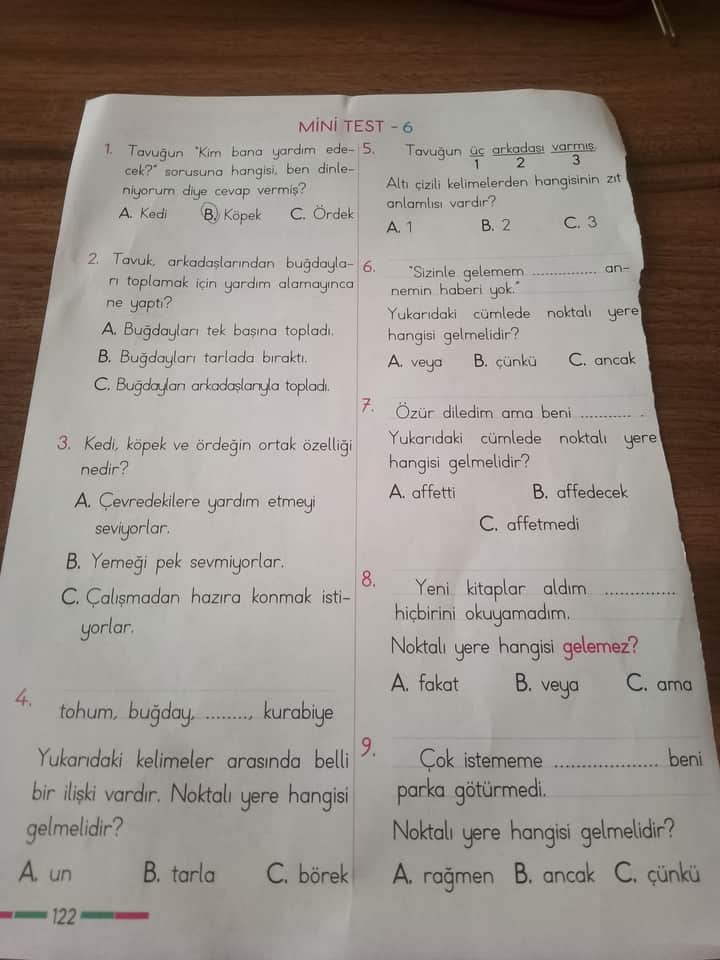 MİNİ TEST - 6
1. Tavuğun "Kim bana yardım ede-
cek?" sorusuna hangisi, ben dinle-
niyorum diye cevap vermiş?
A. Kedi B. Köpek C. Ördek
2. Tavuk, arkadaşlarından buğdayla-
rı toplamak için yardım alamayınca
ne yaptı?
A. Buğdayları tek başına topladı.
B. Buğdayları tarlada bıraktı.
C. Buğdayları arkadaşlarıyla topladı.
3. Kedi, köpek ve ördeğin ortak özelliği
nedir?
A. Çevredekilere yardım etmeyi
seviyorlar.
B. Yemeği pek sevmiyorlar.
C. Çalışmadan hazıra konmak isti-
yorlar.
4. tohum, buğday, ........, kurabiye
Yukarıdaki kelimeler arasında belli
bir ilişki vardır. Noktalı yere hangisi
gelmelidir?
A. un B. tarla C. börek
5. Tavuğun üç arkadaşı varmış.
1 2 3
Altı çizili kelimelerden hangisinin zıt
anlamlısı vardır?
A. 1 B. 2 C. 3
6. "Sizinle gelemem .............. an-
nemin haberi yok."
Yukarıdaki cümlede noktalı yere
hangisi gelmelidir?
A. veya B. çünkü C. ancak
7. Özür diledim ama beni ........... .
Yukarıdaki cümlede noktalı yere
hangisi gelmelidir?
A. affetti B. affedecek
C. affetmedi
8. Yeni kitaplar aldım ..............
hiçbirini okuyamadım.
Noktalı yere hangisi gelemez?
A. fakat B. veya C. ama
9. Çok istememe ................... beni
parka götürmedi.
Noktalı yere hangisi gelmelidir?
A. rağmen B. ancak C. çünkü
122